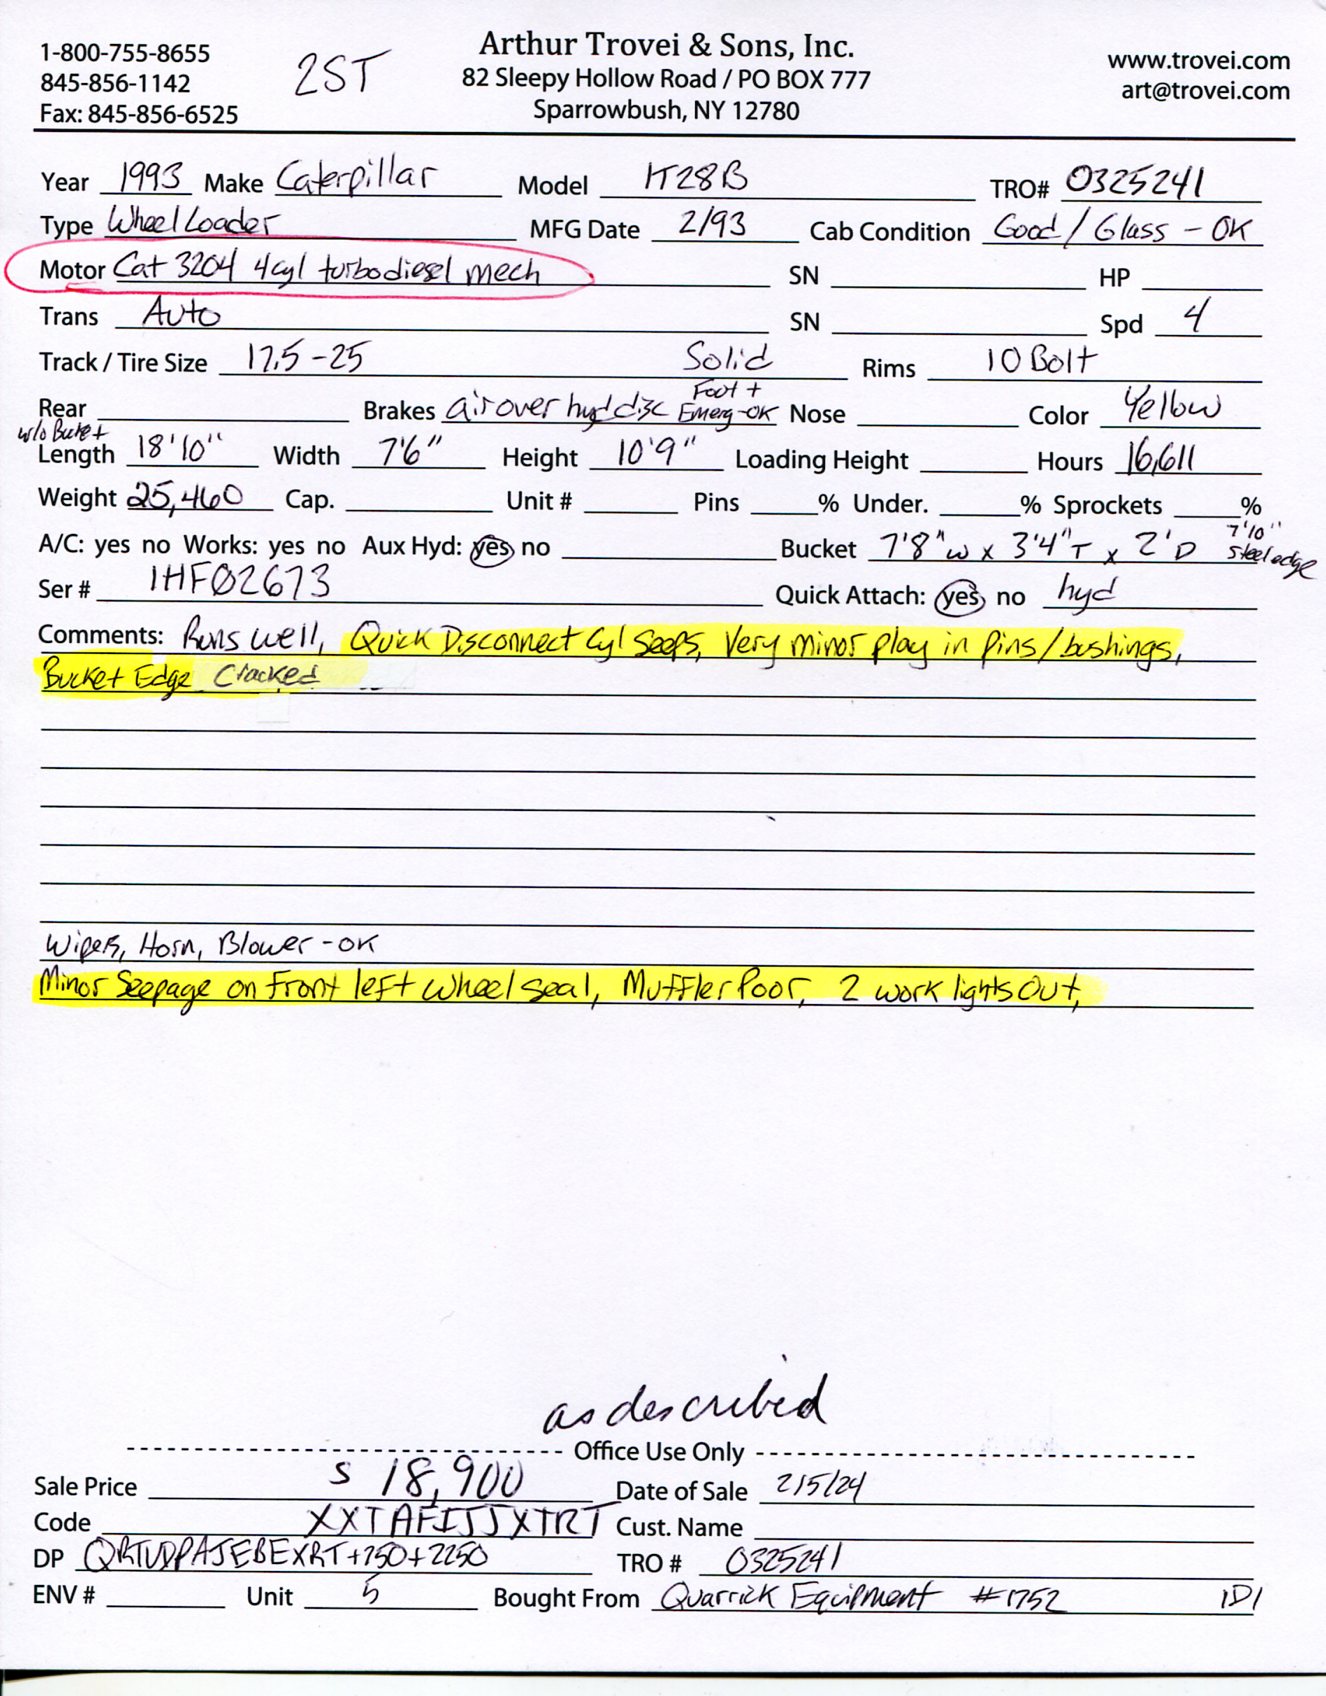 1-800-755-8655
845-856-1142
Fax: 845-856-6525
2ST
Arthur Trovei & Sons, Inc.
82 Sleepy Hollow Road / PO BOX 777
Sparrowbush, NY 12780
www.trovei.com
art@trovei.com
Year 1993 Make Caterpillar Model IT28B TRO# 0325241
Type Wheel Loader MFG Date 2/93 Cab Condition Good / Glass - OK
Motor Cat 3204 4cyl turbo diesel mech SN HP
Trans Auto SN Spd 4
Track / Tire Size 17.5-25 Solid Rims 10 Bolt
Rear Brakes air over hyd disc Foot + Emerg-OK Nose Color Yellow
w/o Bucket
Length 18'10" Width 7'6" Height 10'9" Loading Height Hours 16,611
Weight 25,460 Cap. Unit # Pins % Under. % Sprockets %
A/C: yes no Works: yes no Aux Hyd: yes no Bucket 7'8"W x 3'4"T x 2'D 7'10" Steel edge
Ser # 1HF02673 Quick Attach: yes no hyd
Comments: Runs well, Quick Disconnect Cyl Seeps, Very minor play in pins/bushings,
Bucket Edge Cracked
Wipers, Horn, Blower - OK
Minor Seepage on Front left wheel seal, Muffler Poor, 2 work lights Out,
as described
Office Use Only
Sale Price $ 18,900 Date of Sale 2/5/24
Code XXTAFIJJXTRT Cust. Name
DP QRTUDPAJEBEXRT+750+2250 TRO # 0325241
ENV # Unit 5 Bought From Quarrick Equipment #1752 1D1